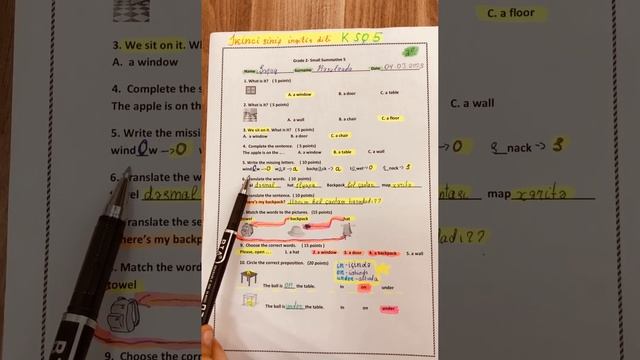 İkinci sinif ingilis dili KSQ5
Grade 2- Small Summative 5
Name: Surname: Date: 04.03.2023
1. What is it? ( 5 points)
A. a window B. a door C. a table
2. What is it? ( 5 points)
A. a wall B. a door C. a floor
3. We sit on it. What is it? (5 points)
A. a window B. a door C. a chair
4. Complete the sentence. ( 5 points)
The apple is on the .... A. a window B. a table C. a wall
5. Write the missing letters. ( 10 points)
wind w → o → a → a → o nack → s
6. Translate the words. ( 10 points)
dəsmal hat şlyapa Backpack bel çantası map xəritə
7. Translate the sentence. ( 10 points)
Where's my backpack? Mənim bel çantam haradadı??
8. Match the to the pictures. (15 points)
towel backpack hat
9. Choose the correct words. ( 15 points)
Please, open ... 1. a hat 2. a window 3. a door 4. a backpack 5. a wall
10. Circle the correct preposition. (20 points)
in - içində
on - üstündə
under - altında
The ball is on the table. In on under
The ball is under the table. In on under
C. a floor
3. We sit on it.
A. a window
4. Complete the
The apple is on the
C. a wall
5. Write the
wind w → o
o nack → s
map xəritə
here's my backp
4. Match the
towel
9. Choose the correct